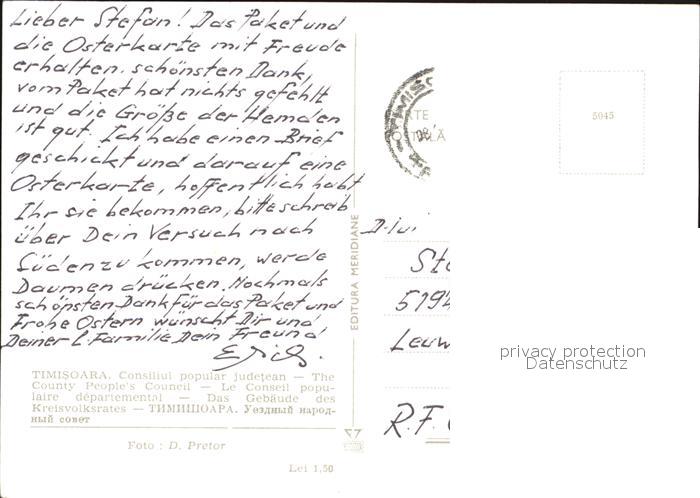 Lieber Stefan! Das Paket und
die Osterkarte mit Freude
erhalten. schönsten Dank,
vom Paket hat nichts gefehlt
und die Größe der Hemden
ist gut. Ich habe einen Brief
geschickt und darauf eine
Osterkarte, hoffentlich habt
Ihr sie bekommen, bitte schreib
über Dein Versuch nach
Süden zu kommen, werde
Daumen drücken. Nochmals
schönsten Dank für das Paket und
Frohe Ostern wünscht Dir und
Deiner l. Familie Dein Freund
TIMIȘOARA. Consiliul popular județean — The
County People's Council — Le Conseil popu-
laire départemental — Das Gebäude des
Kreisvolksrates — ТИМИШОАРА. Уездный народ-
ный совет
Foto : D. Pretor
Lei 1,50
EDITURA MERIDIANE
TIMIȘO
5045
Leuw
R.F.
privacy protection
Datenschutz